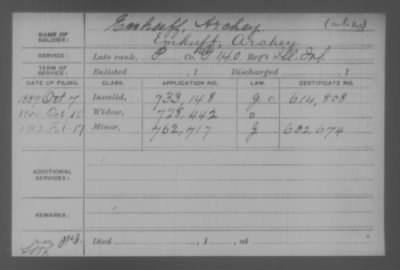 NAME OF SOLDIER: Emhuff, Archey (alias)
Emhuff, Arahey
SERVICE: Late rank, P Co. G 140 Reg't Ill. Inf.
TERM OF SERVICE: Enlisted , 1 Discharged , 1
DATE OF FILING. CLASS. APPLICATION NO. LAW. CERTIFICATE NO.
1889 Oct 7 Invalid, 733,148 G 614,808
1900 Oct 15 Widow, 728,442
Minor, 762,717 G 602,674
ADDITIONAL SERVICES:
REMARKS:
Died , 1 , at